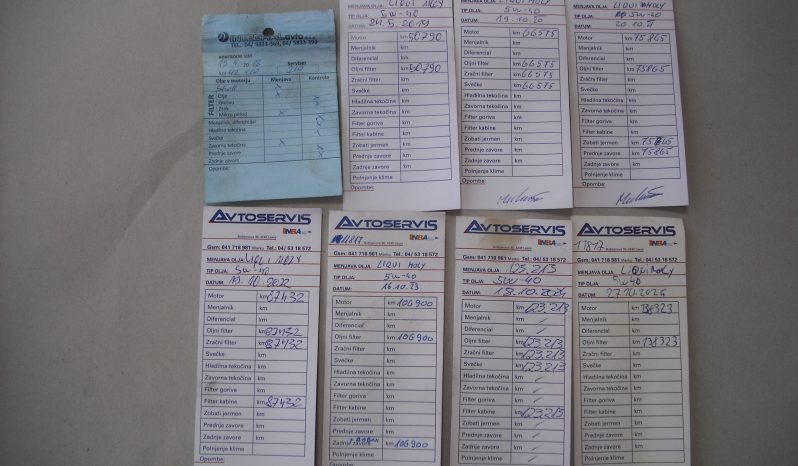 INTEGRAL avto
TEL.: 04/ 5833-369, 04/ 5833-390
KONTROLNI LIST
Serviser
km
Olje v motorju Menjava Kontrola
FILTER
Olje x
Goriva
Zrak x
Menjalnik, diferencial
Hladilna tekočina
Svečke
Zavorna tekočina x
Prednje zavore
Zadnje zavore
Opombe:
MENJAVA OLJA: LIQUI MOLY
TIP OLJA: 5W-40
DATUM: 24.5.2019
Motor km 50790
Menjalnik km
Diferencial km
Oljni filter km 50790
Zračni filter km
Svečke km
Hladilna tekočina km
Zavorna tekočina km
Filter goriva km
Filter kabine km
Zobati jermen km
Prednje zavore km
Zadnje zavore km
Polnjenje klime
Opombe:
MENJAVA OLJA: LIQUI MOLY
TIP OLJA: 5W-40
DATUM: 19.10.20
Motor km 66575
Menjalnik km
Diferencial km
Oljni filter km 66575
Zračni filter km
Svečke km 66575
Hladilna tekočina km
Zavorna tekočina km
Filter goriva km
Filter kabine km
Zobati jermen km
Prednje zavore km
Zadnje zavore km
Polnjenje klime
Opombe:
MENJAVA OLJA: LIQUI MOLY
TIP OLJA: 5W-40
DATUM: 20.10.21
Motor km 75865
Menjalnik km
Diferencial km
Oljni filter km 75865
Zračni filter km
Svečke km
Hladilna tekočina km
Zavorna tekočina km
Filter goriva km
Filter kabine km
Zobati jermen km 75865
Prednje zavore km 75865
Zadnje zavore km
Polnjenje klime
Opombe:
AVTOSERVIS
INBA
Gsm: 041 718 981 Marko Tel.: 04/ 53 18 572
MENJAVA OLJA: LIQUI MOLY
TIP OLJA: 5W-40
DATUM: 19.10.2022
Motor km 87432
Menjalnik km
Diferencial km
Oljni filter km 87432
Zračni filter km 87432
Svečke km
Hladilna tekočina km
Zavorna tekočina km
Filter goriva km
Filter kabine km 87432
Zobati jermen km
Prednje zavore km
Zadnje zavore km
Polnjenje klime
Opombe:
AVTOSERVIS
INBA
Gsm: 041 718 981 Marko Tel.: 04/ 53 18 572
MENJAVA OLJA: LIQUI MOLY
TIP OLJA: 5W-40
DATUM: 16.10.23
Motor km 106900
Menjalnik km
Diferencial km
Oljni filter km 106900
Zračni filter km
Svečke km
Hladilna tekočina km
Zavorna tekočina km
Filter goriva km
Filter kabine km
Zobati jermen km
Prednje zavore km
Zadnje zavore km 106900
Polnjenje klime
AVTOSERVIS
INBA
Gsm: 041 718 981 Marko Tel.: 04/ 53 18 572
MENJAVA OLJA:
TIP OLJA: 5W-40
DATUM: 18.10.2024
Motor km 123.213
Menjalnik km
Diferencial km
Oljni filter km 123.213
Zračni filter km 123.213
Svečke km 123.213
Hladilna tekočina km
Zavorna tekočina km
Filter goriva km
Filter kabine km 123.213
Zobati jermen km
Prednje zavore km
Zadnje zavore km
Polnjenje klime
AVTOSERVIS
11817 INBA
Gsm: 041 718 981 Marko Tel.: 04/ 53 18 572
MENJAVA OLJA: LIQUI MOLY
TIP OLJA: 5W-40
DATUM:
Motor km 138323
Menjalnik km
Diferencial km
Oljni filter km 138323
Zračni filter km
Svečke km
Hladilna tekočina km
Zavorna tekočina km
Filter goriva km
Filter kabine km
Zobati jermen km
Prednje zavore km
Zadnje zavore km
Polnjenje klime